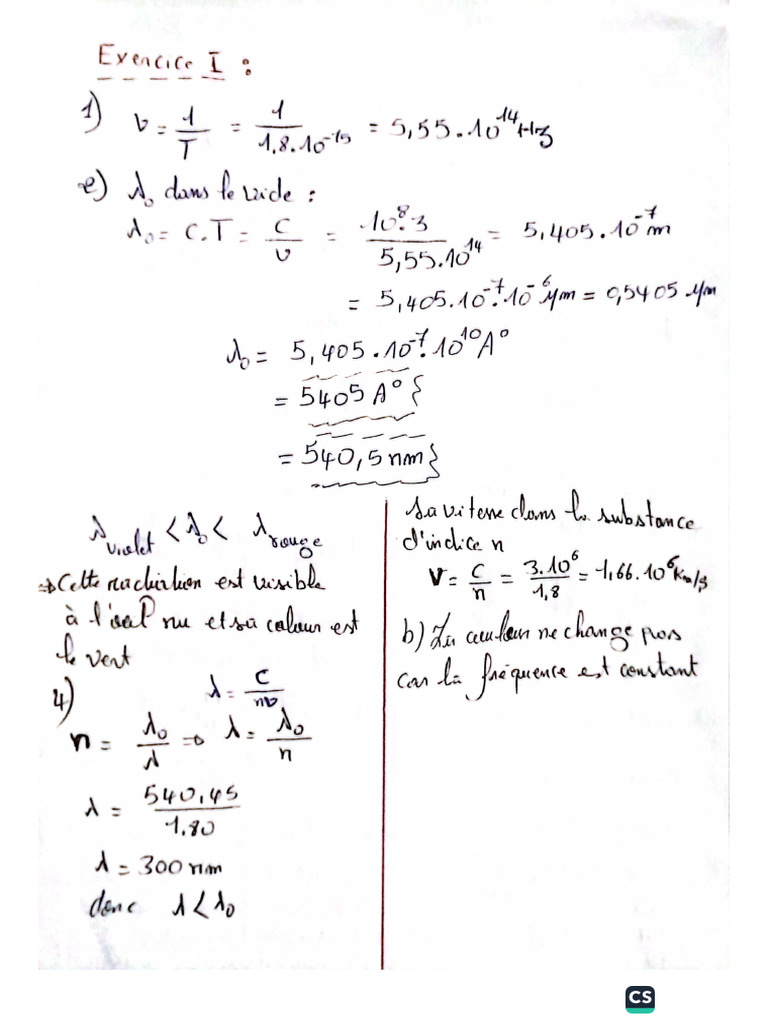 Exercice I :
1) ν = 1/T = 1/1,8.10^-15 = 5,55.10^14 Hz
2) λ₀ dans le vide :
λ₀ = C.T = C/ν = 10^8.3/5,55.10^14 = 5,405.10^-7 m
= 5,405.10^-7.10^-6 µm = 0,5405 µm
λ₀ = 5,405.10^-7.10^10 A°
= 5405 A° }
= 540,5 nm }
λ violet < λ₀ < λ rouge
⇒ Cette radiation est visible
à l'œil nu et sa couleur est
le vert
4) λ = C/nν
n = λ₀/λ ⇒ λ = λ₀/n
λ = 540,45/1.80
λ = 300 nm
donc λ < λ₀
sa vitesse dans la substance
d'indice n
v = C/n = 3.10^6/1,8 = 1,66.10^6 Km/s
b) La couleur ne change pas
car la fréquence est constant
CS